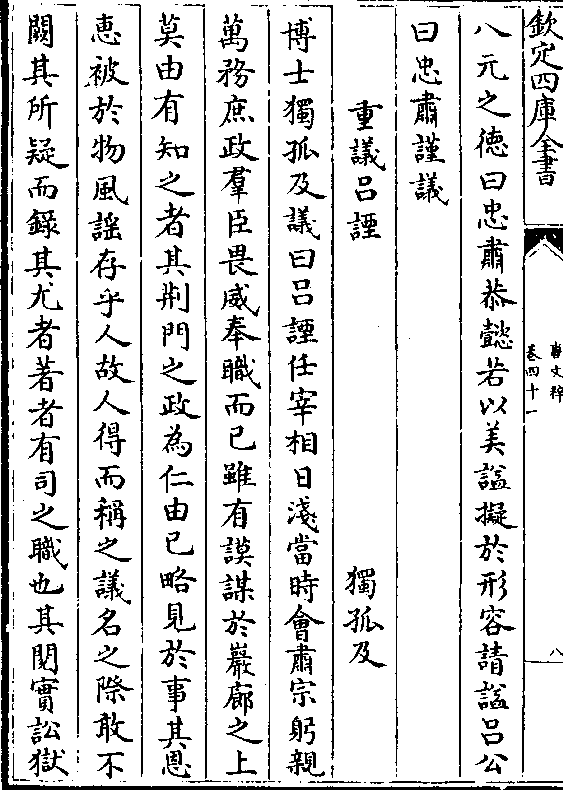 欽定四庫全書
唐文粹
卷四十一
八
八元之徳曰忠肅恭懿若以美諡擬於形容請諡吕公
曰忠肅謹議
重議吕諲
獨孤及
博士獨孤及議曰吕諲任宰相日淺當時會肅宗躬親
萬務庶政羣臣畏威奉職而已雖有謨謀於巖廊之上
莫由有知之者其荆門之政為仁由已略見於事其恩
惠被於物風謡存乎人故人得而稱之議名之際敢不
闕其所疑而錄其尤者著者有司之職也其閱實訟獄